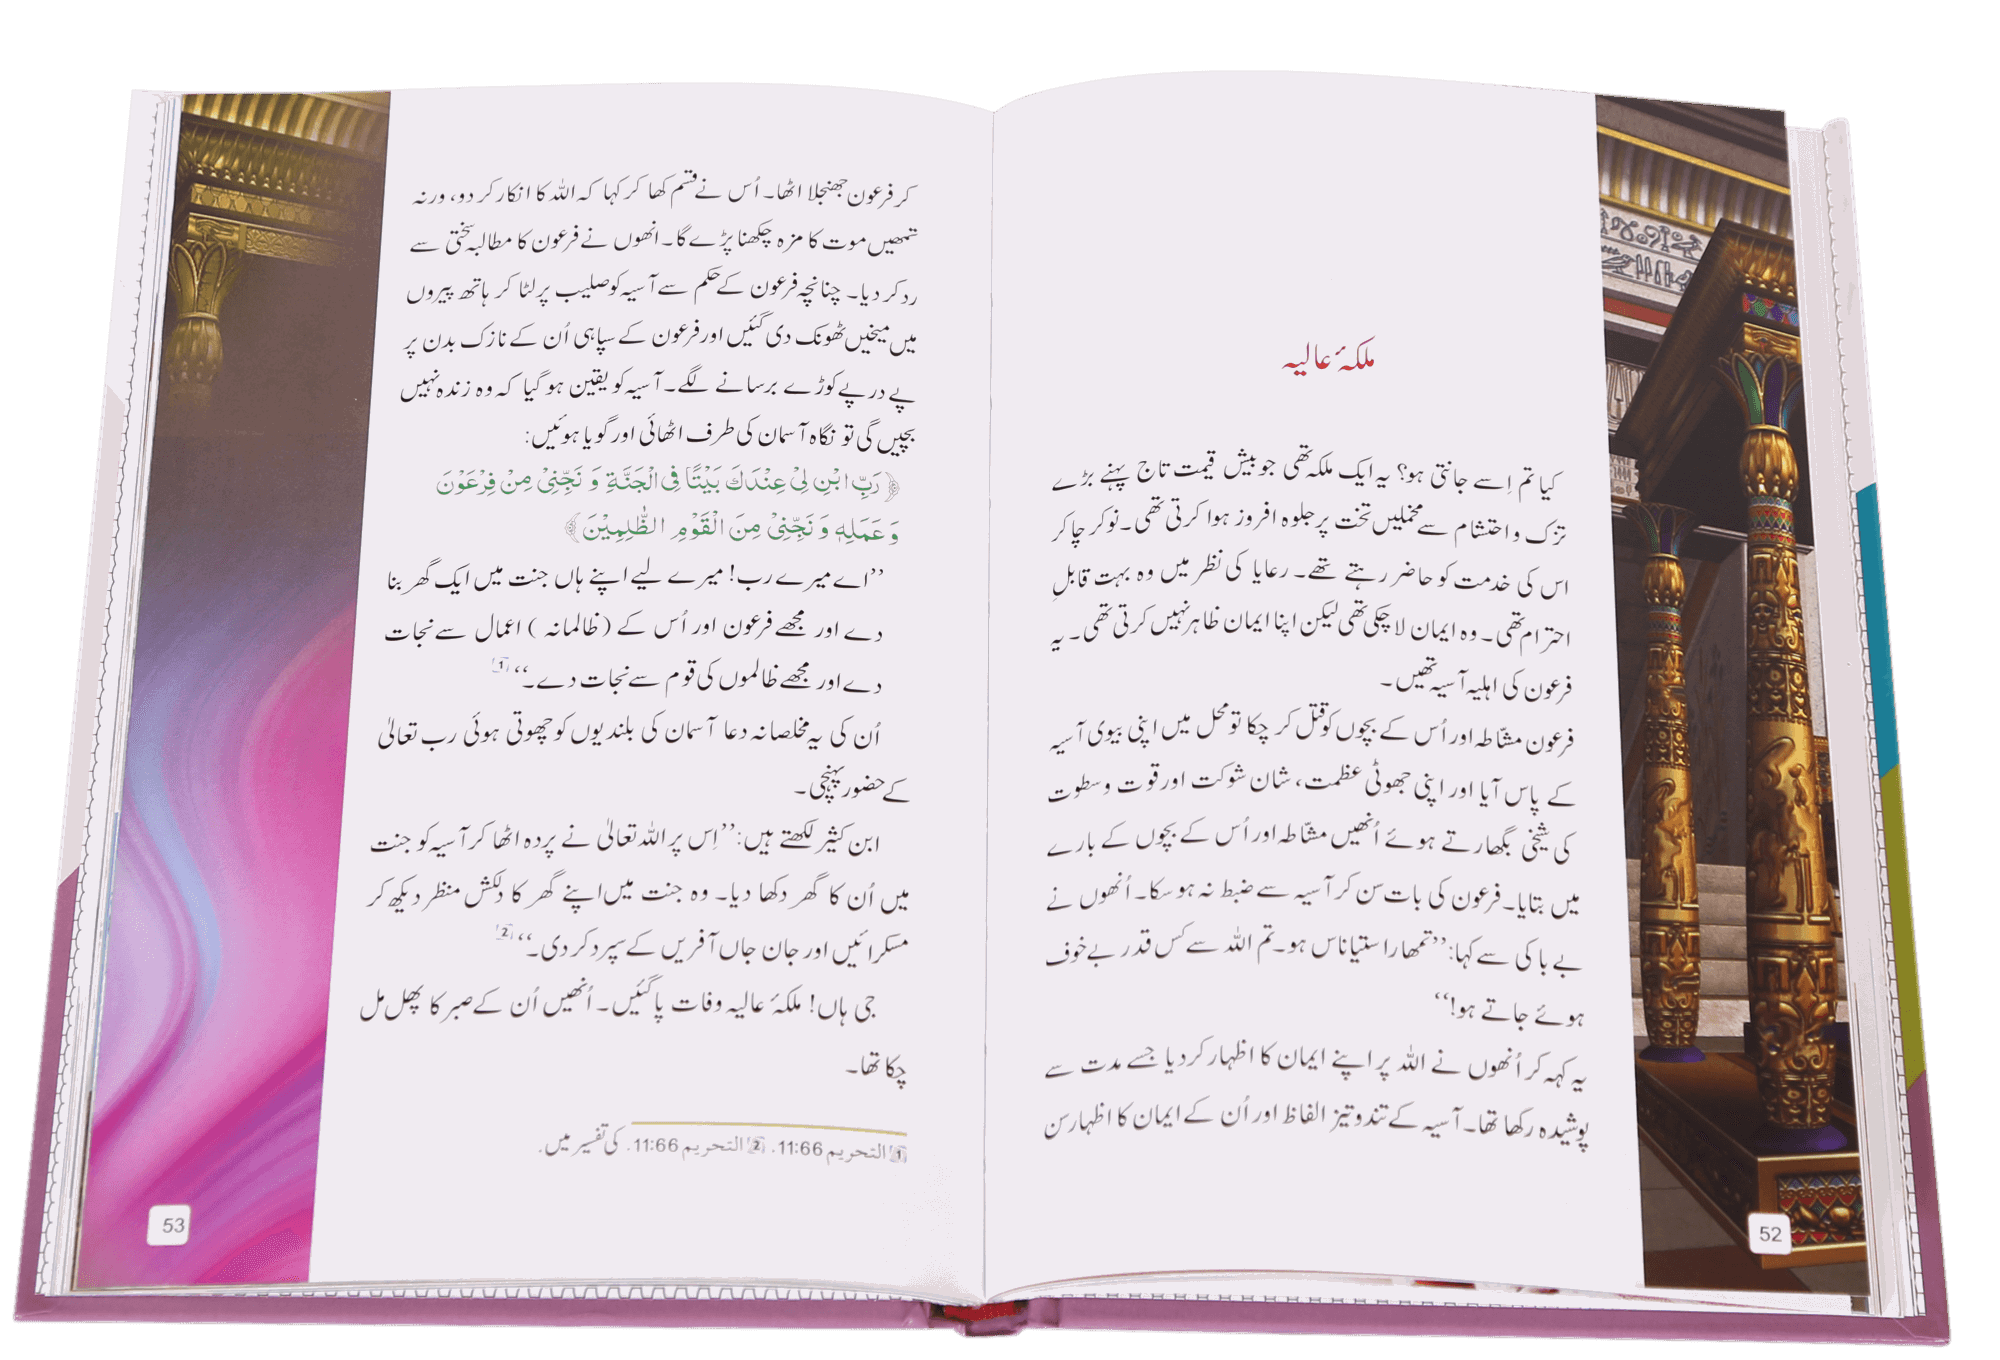 ملکۂ عالیہ
کیا تم اِسے جانتی ہو؟ یہ ایک ملکہ تھی جو بیش قیمت تاج پہنے بڑے
تزک و احتشام سے مخملیں تخت پر جلوہ افروز ہوا کرتی تھی۔ نوکر چاکر
اس کی خدمت کو حاضر رہتے تھے۔ رعایا کی نظر میں وہ بہت قابلِ
احترام تھی۔ وہ ایمان لا چکی تھی لیکن اپنا ایمان ظاہر نہیں کرتی تھی۔ یہ
فرعون کی اہلیہ آسیہ تھیں۔
فرعون مشّاطہ اور اُس کے بچوں کو قتل کر چکا تو محل میں اپنی بیوی آسیہ
کے پاس آیا اور اپنی جھوٹی عظمت، شان شوکت اور قوت و سطوت
کی شیخی بگھارتے ہوئے اُنھیں مشّاطہ اور اُس کے بچوں کے بارے
میں بتایا۔ فرعون کی بات سن کر آسیہ سے ضبط نہ ہو سکا۔ اُنھوں نے
بے باکی سے کہا: ’’تمھارا ستیاناس ہو۔ تم اللہ سے کس قدر بے خوف
ہوئے جاتے ہو!‘‘
یہ کہہ کر اُنھوں نے اللہ پر اپنے ایمان کا اظہار کر دیا جسے مدت سے
پوشیدہ رکھا تھا۔ آسیہ کے تند و تیز الفاظ اور اُن کے ایمان کا اظہار سن
52
کر فرعون جھنجلا اٹھا۔ اُس نے قسم کھا کر کہا کہ اللہ کا انکار کر دو، ورنہ
تمھیں موت کا مزہ چکھنا پڑے گا۔ انھوں نے فرعون کا مطالبہ سختی سے
رد کر دیا۔ چنانچہ فرعون کے حکم سے آسیہ کو صلیب پر لٹا کر ہاتھ پیروں
میں میخیں ٹھونک دی گئیں اور فرعون کے سپاہی اُن کے نازک بدن پر
پے در پے کوڑے برسانے لگے۔ آسیہ کو یقین ہو گیا کہ وہ زندہ نہیں
بچیں گی تو نگاہ آسمان کی طرف اٹھائی اور گویا ہوئیں:
﴿رَبِّ ابْنِ لِیْ عِنْدَكَ بَیْتًا فِی الْجَنَّةِ وَ نَجِّنِیْ مِنْ فِرْعَوْنَ
وَ عَمَلِهٖ وَ نَجِّنِیْ مِنَ الْقَوْمِ الظّٰلِمِیْنَ﴾
’’اے میرے رب! میرے لیے اپنے ہاں جنت میں ایک گھر بنا
دے اور مجھے فرعون اور اُس کے (ظالمانہ) اعمال سے نجات
دے اور مجھے ظالموں کی قوم سے نجات دے۔‘‘ 1
اُن کی یہ مخلصانہ دعا آسمان کی بلندیوں کو چھوتی ہوئی رب تعالیٰ
کے حضور پہنچی۔
ابن کثیر لکھتے ہیں: ’’اِس پر اللہ تعالیٰ نے پردہ اٹھا کر آسیہ کو جنت
میں اُن کا گھر دکھا دیا۔ وہ جنت میں اپنے گھر کا دلکش منظر دیکھ کر
مسکرائیں اور جان جاں آفریں کے سپرد کر دی۔‘‘ 2
جی ہاں! ملکۂ عالیہ وفات پا گئیں۔ اُنھیں اُن کے صبر کا پھل مل
چکا تھا۔
1 التحريم 11:66. 2 التحريم 11:66. کی تفسیر میں.
53